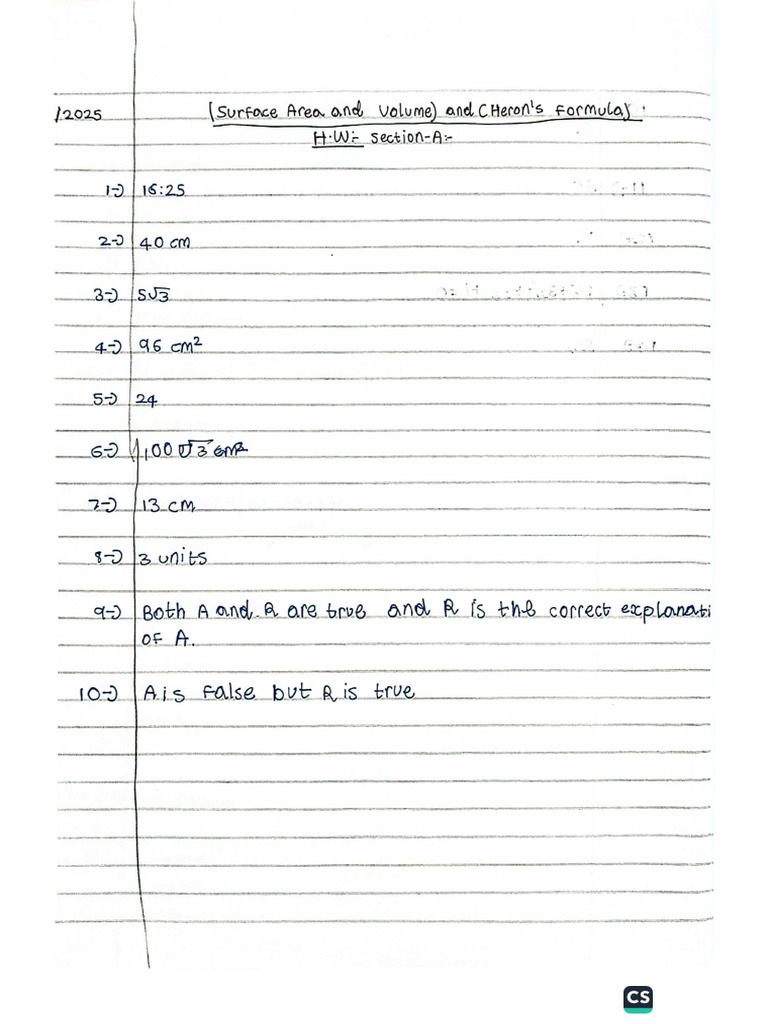 /2025 (Surface Area and Volume) and (Heron's formula)
H.W:- Section-A:-
1-) 16:25
2-) 40 cm
3-) 5√3
4-) 96 cm²
5-) 24
6-) 100√3 cm²
7-) 13 cm
8-) 3 units
9-) Both A and R are true and R is the correct explanati
of A.
10-) A is false but R is true
CS